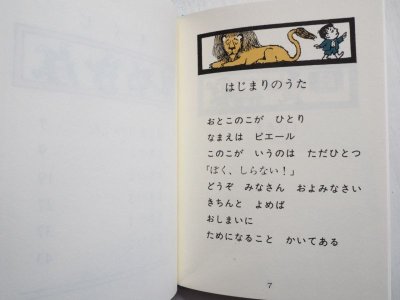 はじまりのうた
おとこのこが　ひとり
なまえは　ピエール
このこが　いうのは　ただひとつ
「ぼく、しらない！」
どうぞ　みなさん　およみなさい
きちんと　よめば
おしまいに
ためになること　かいてある
7